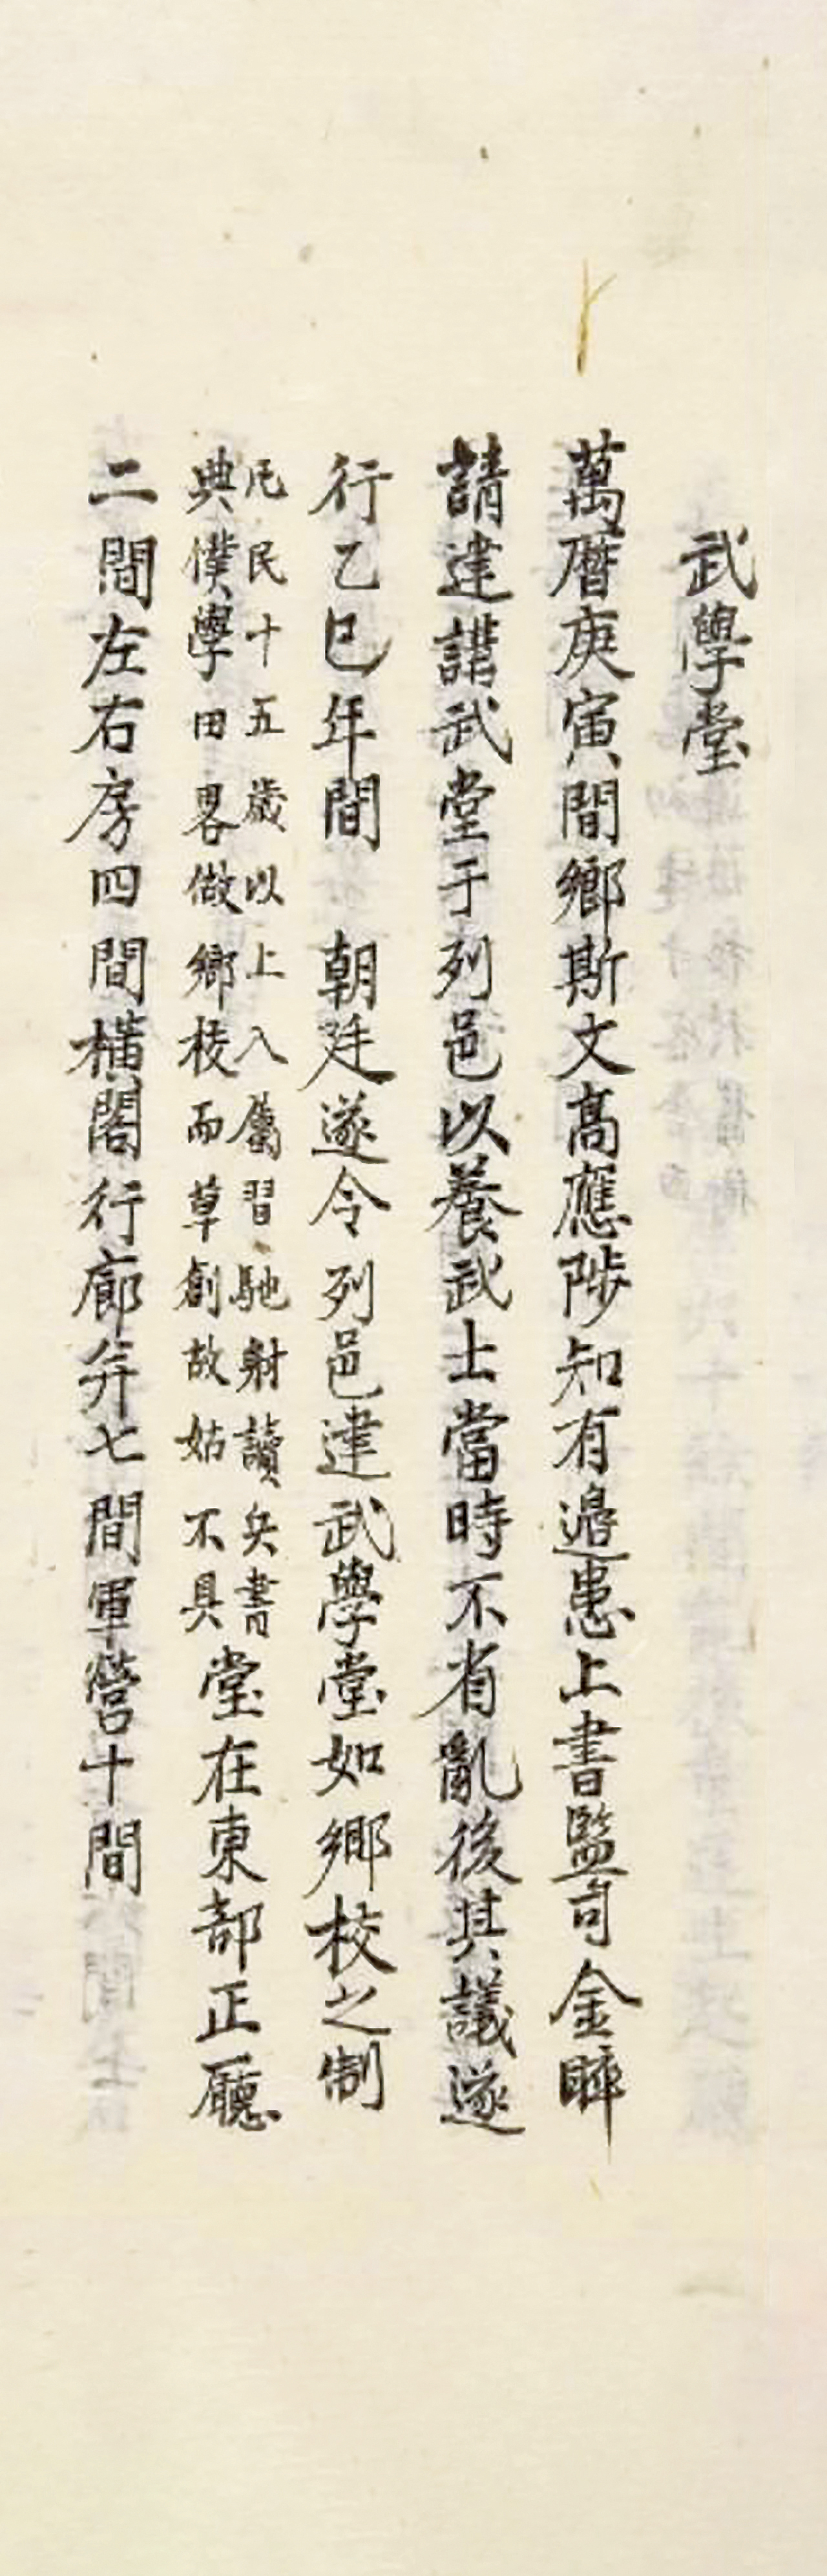 武學堂
萬曆庚寅間鄉斯文高應陟知有邊患上書監司金睟
請建講武堂于列邑以養武士當時不省亂後其議遂
行乙巳年間 朝廷遂令列邑建武學堂如鄉校之制
凡民十五歲以上入屬習馳射讀兵書
典僕學田畧倣鄉校而草創故姑不具
堂在東部正廳
二間左右房四間橫閣行廊并七間軍營十間